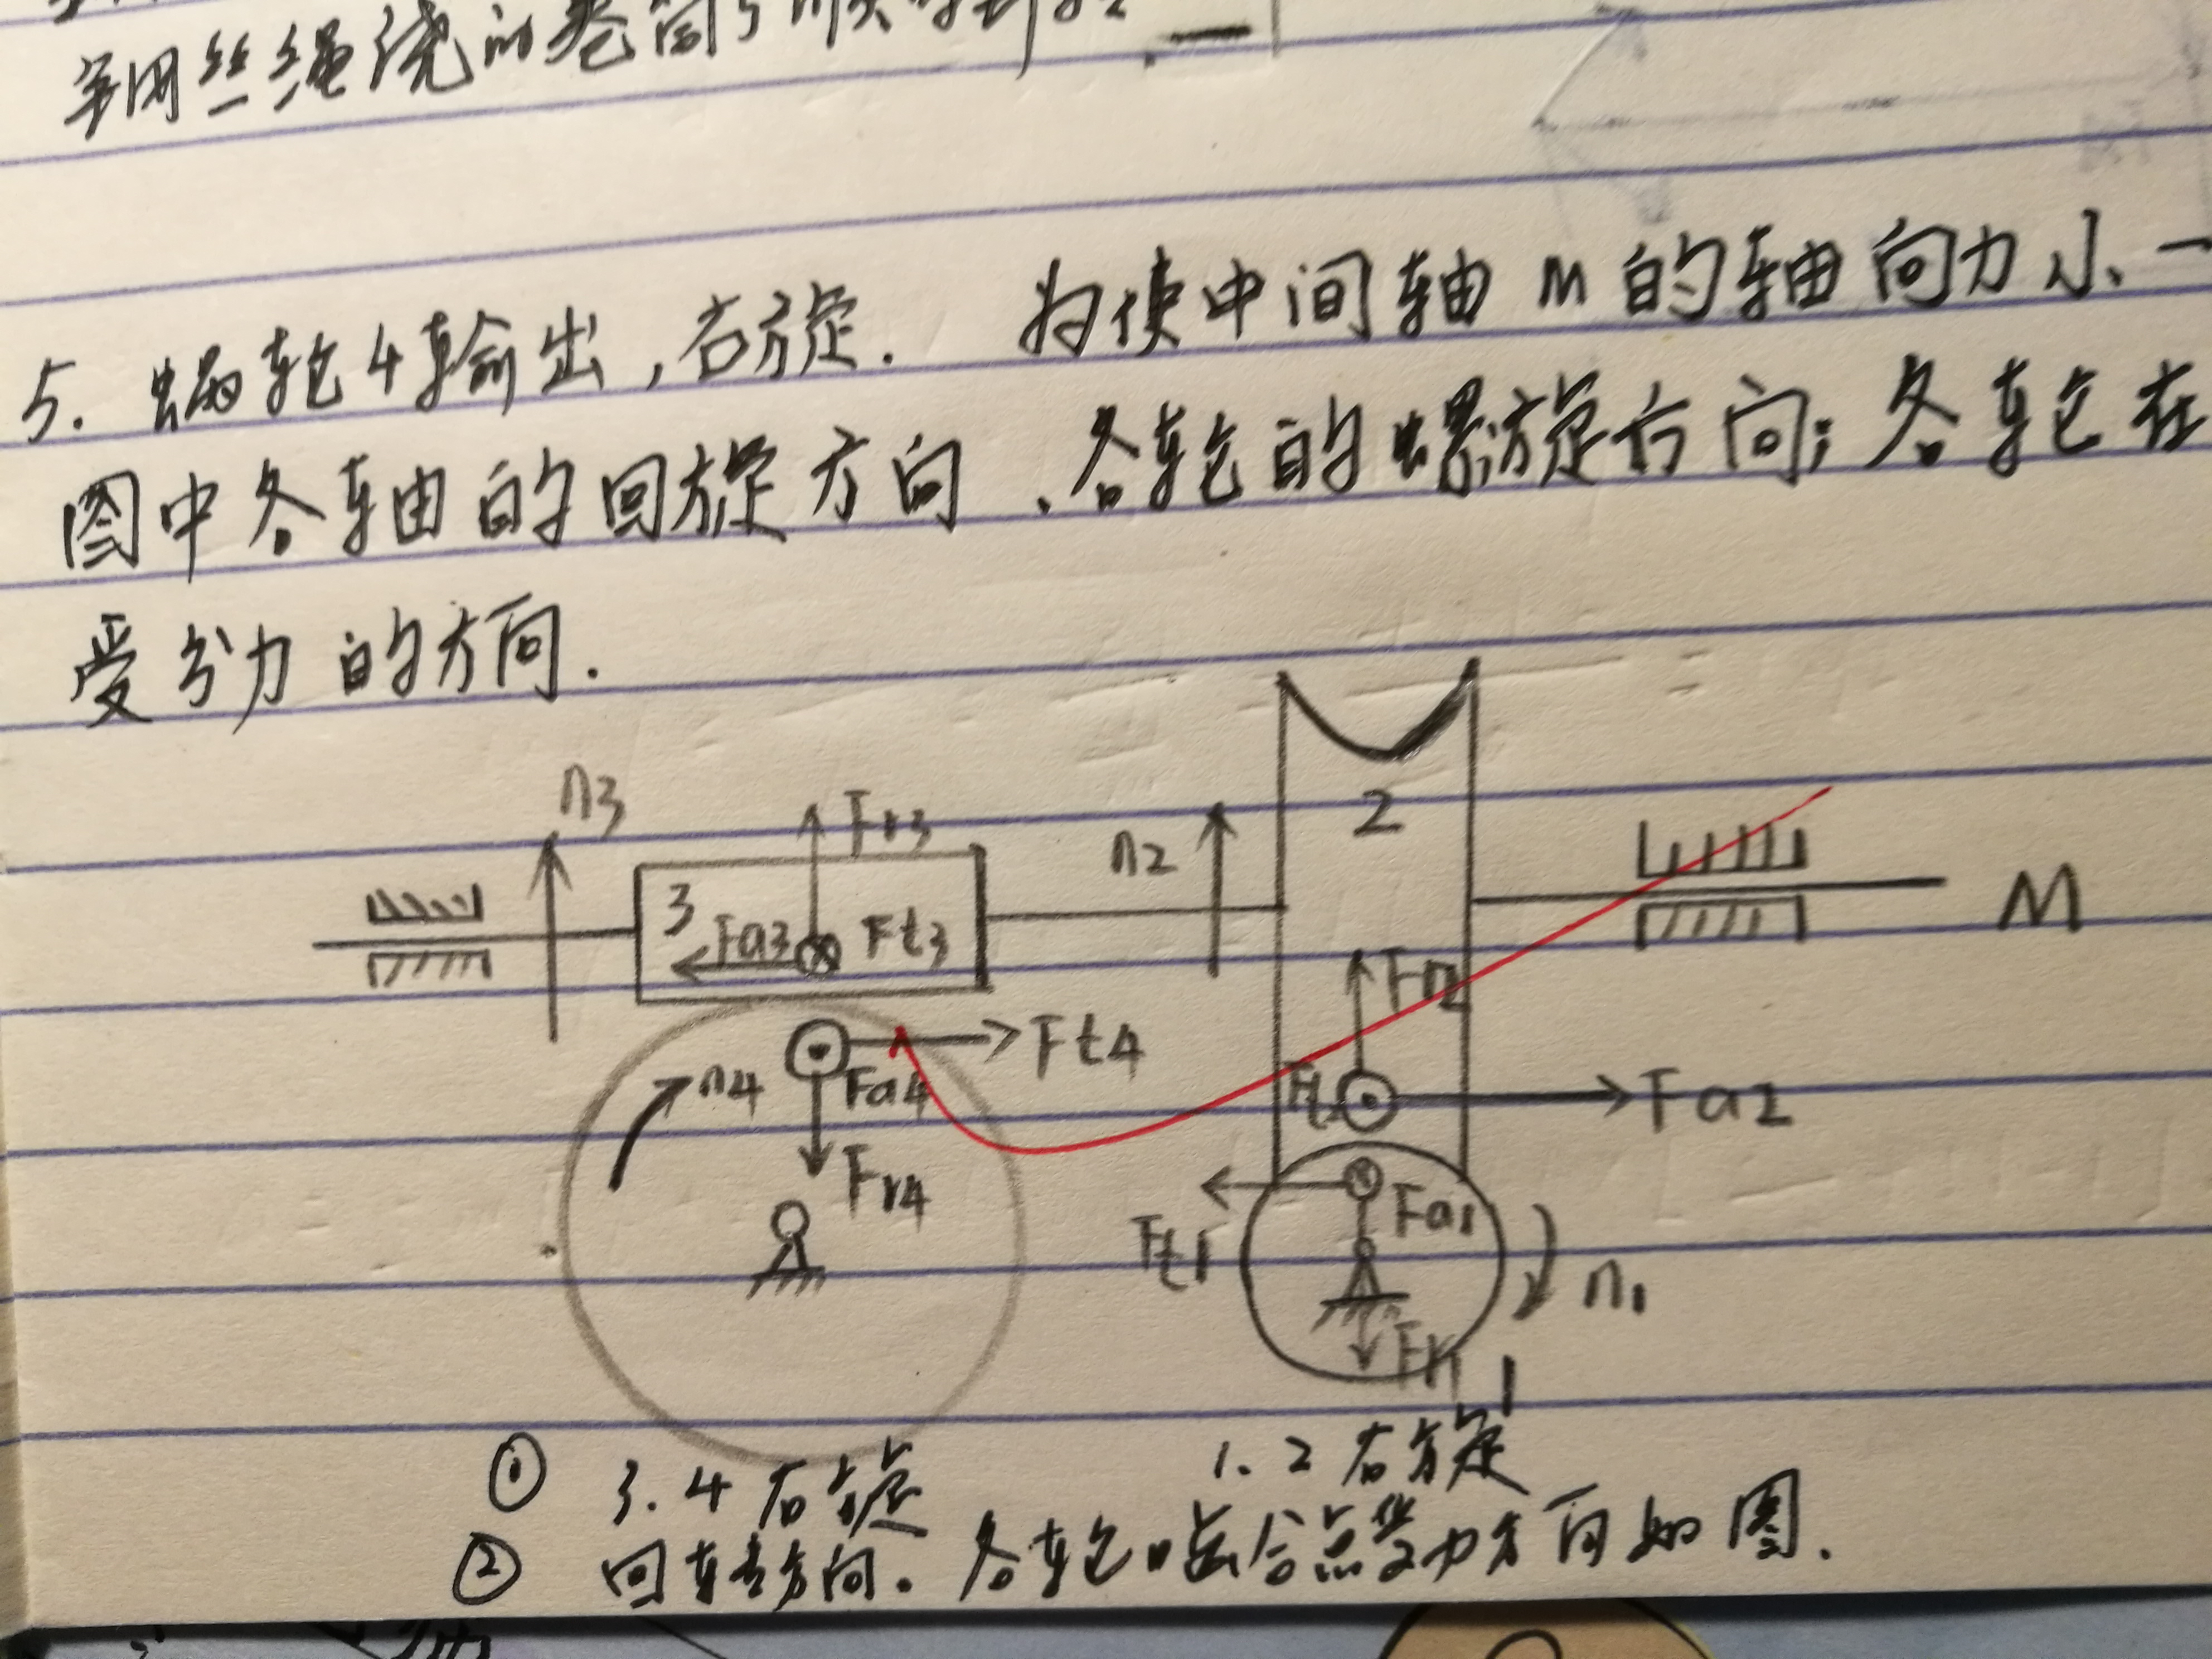 车用丝绳绕的卷筒5顺时针
5. 蜗轮4输出,右旋. 为使中间轴M的轴向力小、一
图中各轴的回旋方向、各轮的螺旋方向;各轮在
受分力的方向.
n3
Fr3
n2
2
3
Fa3
Ft3
M
Fr2
Ft4
n4
Fa4
Ft2
Fa2
Fr4
Fa1
Ft1
n1
Fr1
1
① 3.4右旋 1.2右旋
② 回转方向. 各轮啮合点受力方向如图.